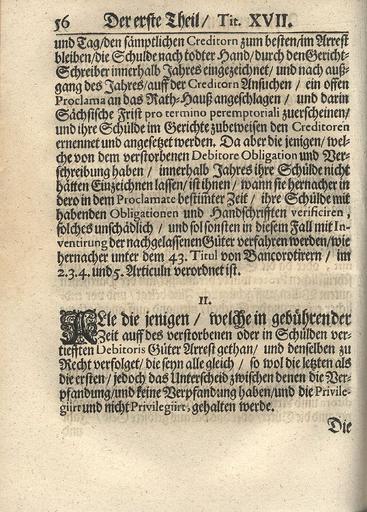 56 Der erste Theil/ Tit. XVII.
und Tag/den sämptlichen Creditorn zum besten/im Arrest
bleiben/die Schulde nach todter Hand/durch den Gericht-
Schreiber innerhalb Jahres eingezeichnet/ und nach auß-
gang des Jahres/auff der Creditorn Ansuchen / ein offen
Proclama an das Rath-Hauß angeschlagen / und darin
Sächsische Frist pro termino peremptoriali zuerscheinen/
und ihre Schülde im Gerichte zubeweisen den Creditoren
ernennet und angesetzet werden. Da aber die jenigen/wel-
che von dem verstorbenen Debitore Obligation und Ver-
schreibung haben / innerhalb Jahres ihre Schülde nicht
hätten Einzeichnen lassen/ist ihnen/ wann sie hernacher in
dero in dem Proclamate bestimter Zeit / ihre Schülde mit
habenden Obligationen und Handschrifften verificiren,
solches unschädlich / und sol sonsten in diesem Fall mit In-
ventirung der nachgelassenen Güter verfahren werden/wie
hernacher unter dem 43. Titul von Bancorotirern / im
2.3.4. und 5. Articuln verordnet ist.
II.
ALle die jenigen / welche in gebührender
Zeit auff des verstorbenen oder in Schülden ver-
tiefften Debitoris Güter Arrest gethan/ und denselben zu
Recht verfolget/die seyn alle gleich / so wol die letzten als
die ersten/ jedoch das Unterscheid zwischen denen die Ver-
pfandung/und keine Verpfandung haben/und die Privile-
giirt und nicht Privilegiirt, gehalten werde.
Die